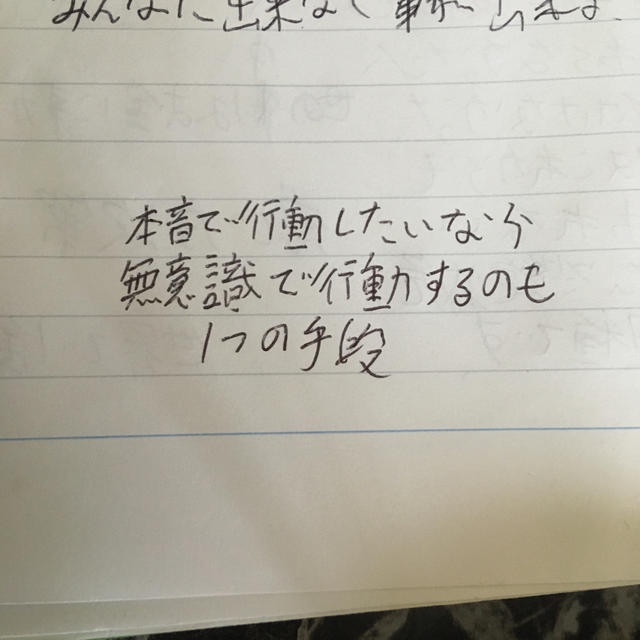 みんなに出来なくて事が出来る
本音で行動したいなら
無意識で行動するのも
1つの手段